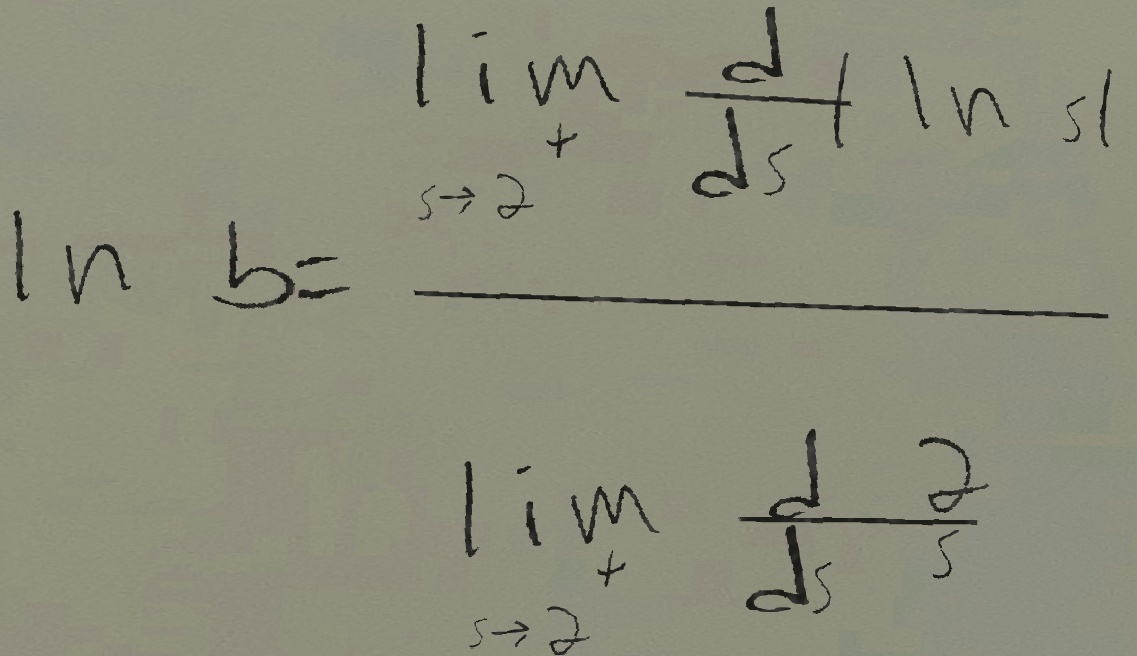 \ln b = \frac{\lim_{s \to 2^+} \frac{d}{ds} |\ln s|}{\lim_{s \to 2^+} \frac{d}{ds} \frac{2}{s}}